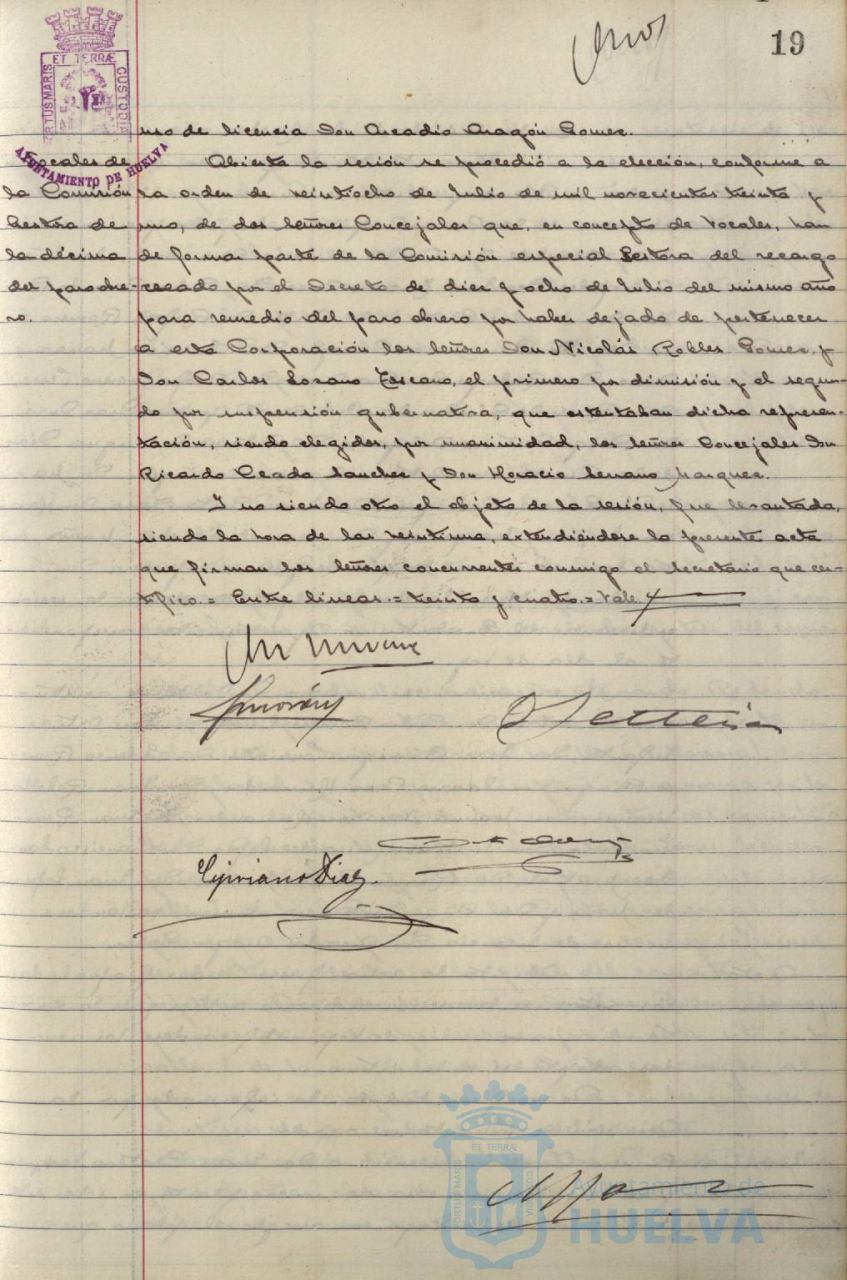 19
ET TERRÆ
PORTUS MARIS
CUSTODIA
AYUNTAMIENTO DE HUELVA
Vocales de
la Comisión
Gestora de
la décima
del paro obre-
ro.
uso de licencia Don Arcadio Aragón Gomez.
Abierta la sesión se procedió a la elección, conforme a
la orden de veintiocho de Julio de mil novecientos treinta y
uno, de dos señores Concejales que, en concepto de vocales, han
de formar parte de la Comisión especial Gestora del recargo
creado por el Decreto de diez y ocho de Julio del mismo año
para remedio del paro obrero por haber dejado de pertenecer
a esta Corporación los señores Don Nicolás Robles Gomez y
Don Carlos Lozano Toscano, el primero por dimisión y el segun-
do por suspensión gubernativa, que ostentaban dicha represen-
tación, siendo elegidos, por unanimidad, los señores Concejales Don
Ricardo Ceada Sanchez y Don Horacio Serrano Marquez.
Y no siendo otro el objeto de la sesión, fue levantada,
siendo la hora de las veintiuna, extendiéndose la presente acta
que firman los señores concurrentes conmigo el secretario que cer-
tifico.= Entre lineas.= treinta y cuatro.= Vale
Cipriano Diaz
ET TERRÆ
PORTUS MARIS
CUSTODIA
Ayuntamiento de
HUELVA